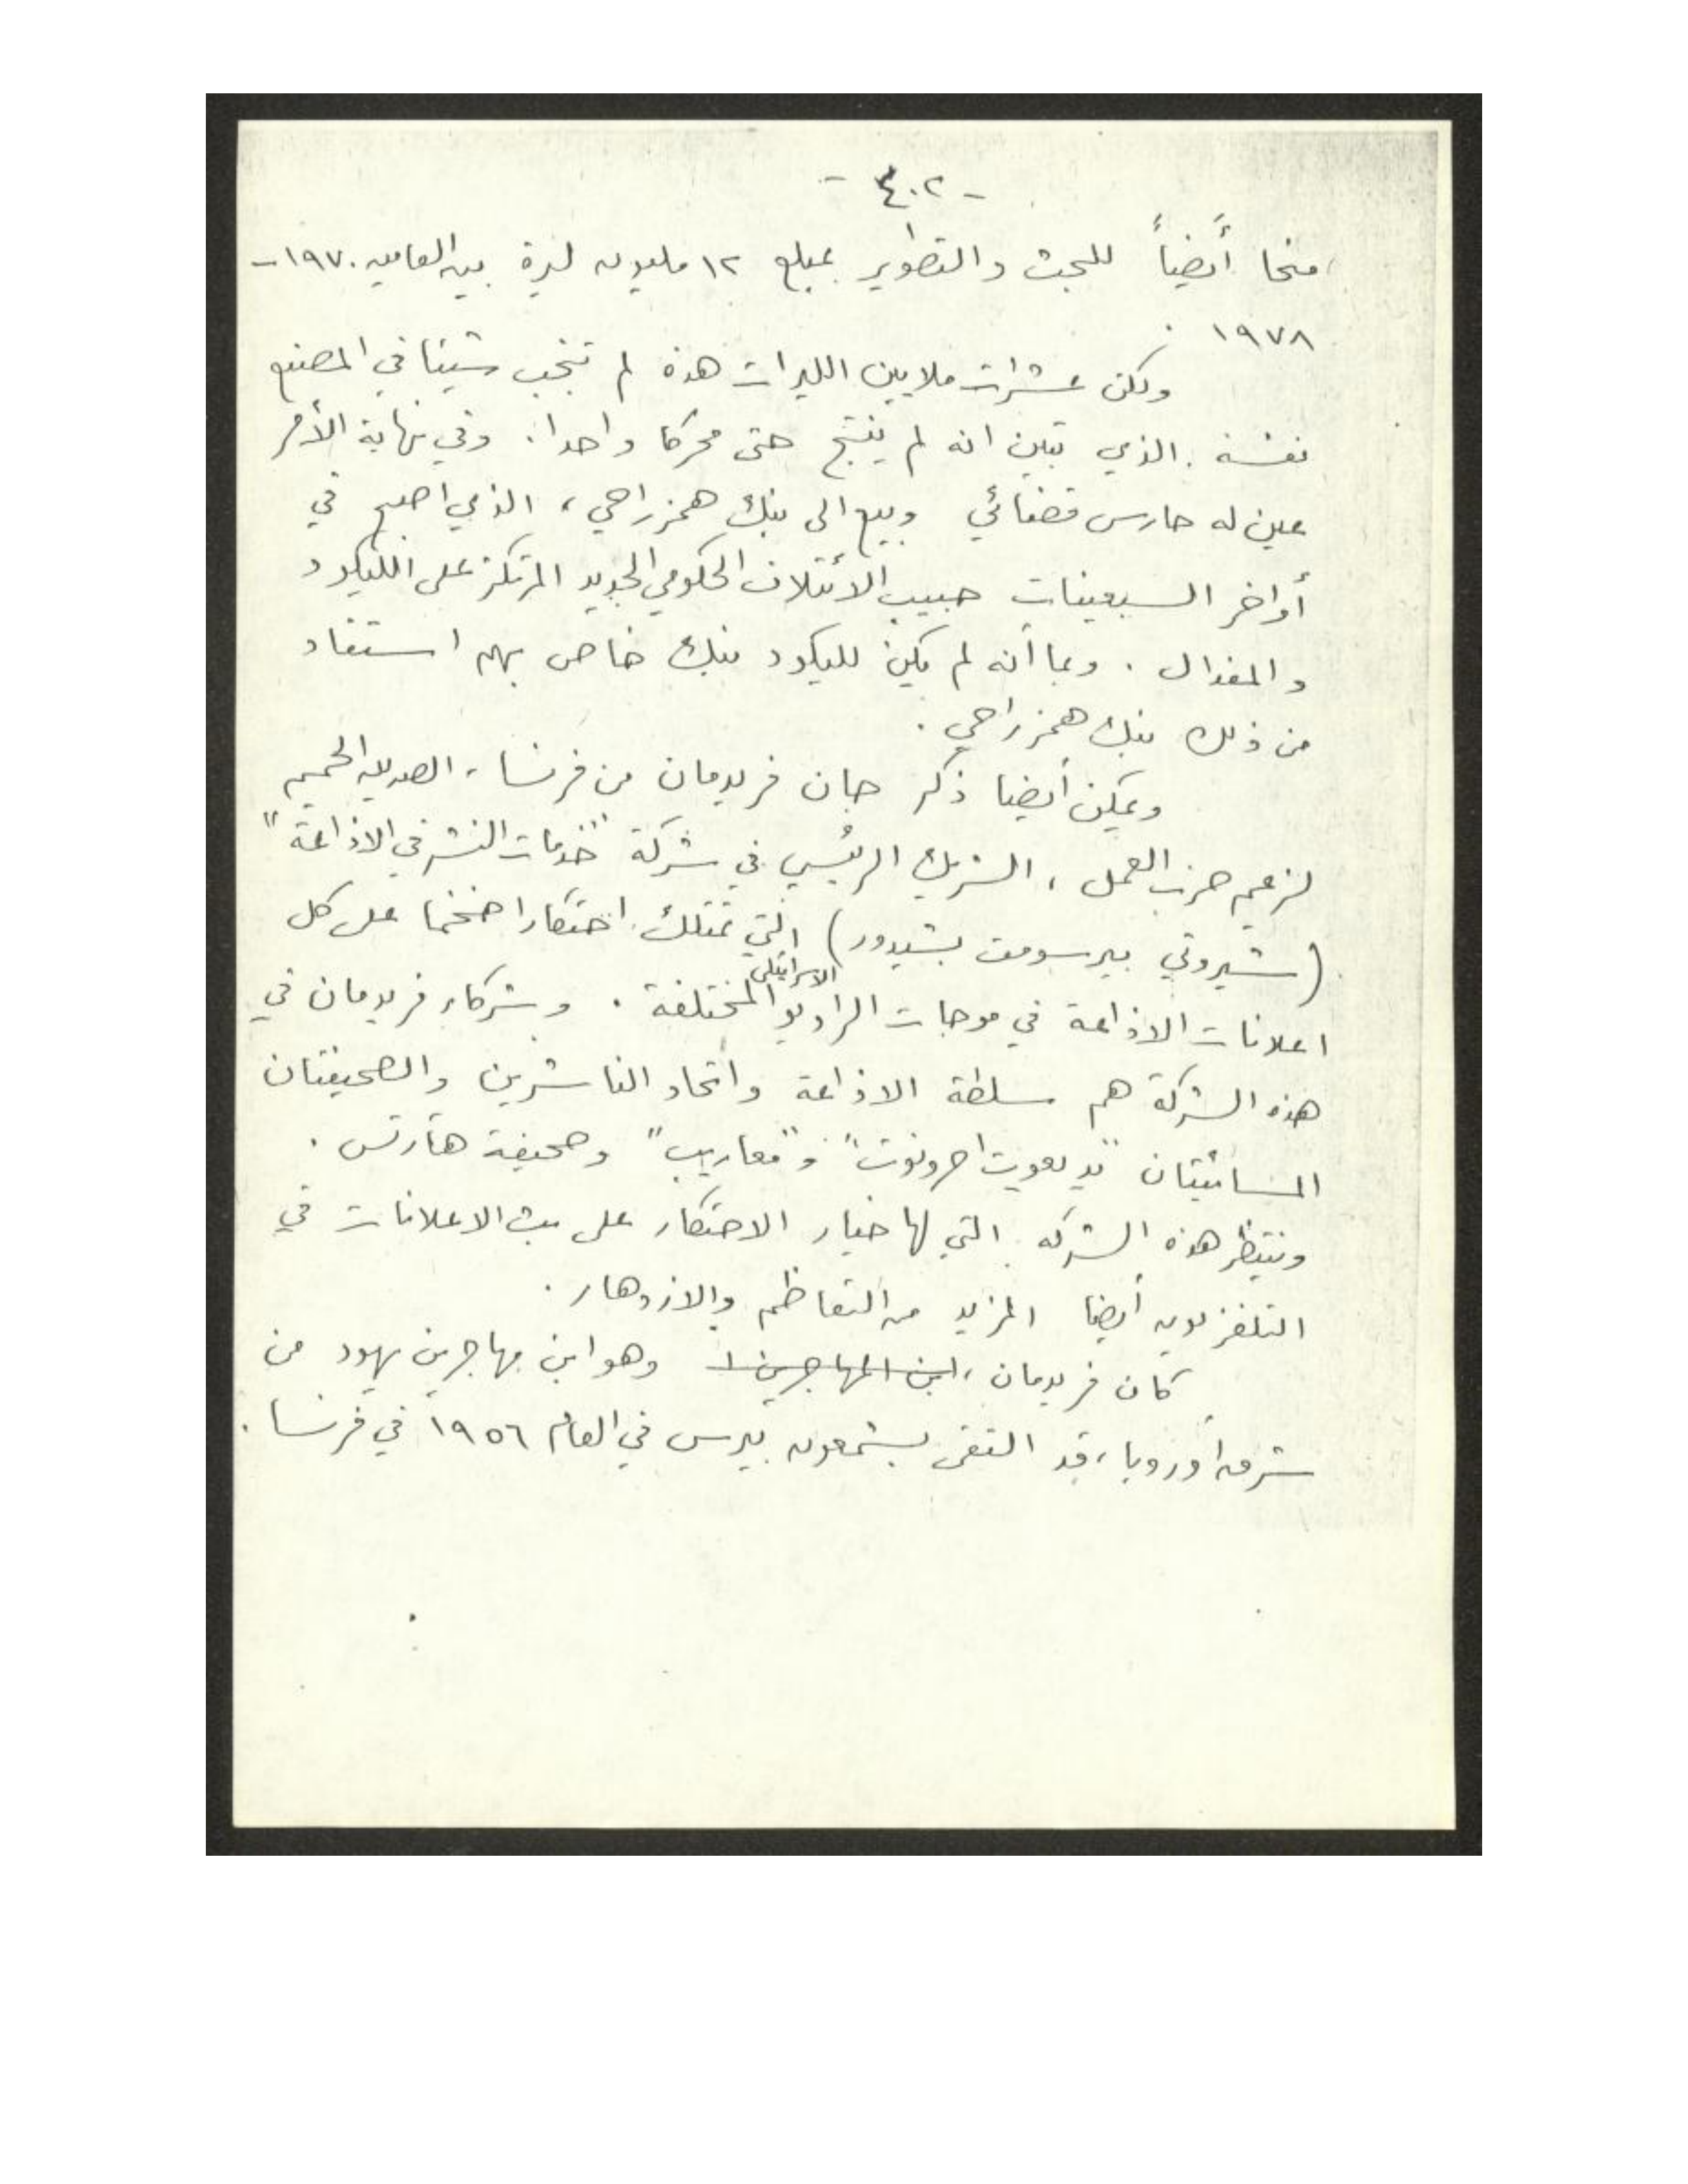 - ٤٠٢ -
منحا أيضاً للبحث والتطوير بمبلغ ١٢ مليون ليرة بين العامين ١٩٧٠ -
١٩٧٨ .
ولكن عشرات ملايين الليرات هذه لم تنجب شيئا في المصنع
نفسه . الذي تبين انه لم ينتج حتى محركا واحدا . وفي نهاية الأمر
عين له حارس قضائي وبيع الى بنك همزراحي ، الذي اصبح في
أواخر السبعينات حبيب الائتلاف الحكومي الجديد المرتكز على الليكود
والمفدال . وبما أنه لم يكن لليكود بنك خاص بهم استفاد
من ذلك بنك همزراحي .
ويمكن أيضا ذكر جان فريدمان من فرنسا ، الصديق الحميم
لزعيم حزب العمل ، الشريك الرئيسي في شركة "خدمات النشر في الاذاعة"
(شيروتي بيرسومت بشيدور) التي تمتلك احتكارا ضخما على كل
اعلانات الاذاعة في موجات الراديو الاسرائيلي المختلفة . وشركاء فريدمان في
هذه الشركة هم سلطة الاذاعة واتحاد الناشرين والصحيفتان
المسائيتان "يديعوت احرونوت" و "معاريب" وصحيفة هآرتس .
وينتظر هذه الشركه . التي لها خيار الاحتكار على بث الاعلانات في
التلفزيون أيضا المزيد من التعاظم والازدهار .
كان فريدمان ، ابن المهاجرين ا وهو ابن مهاجرين يهود من
شرق أوروبا ، قد التقى بشمعون بيرس في العام ١٩٥٦ في فرنسا .